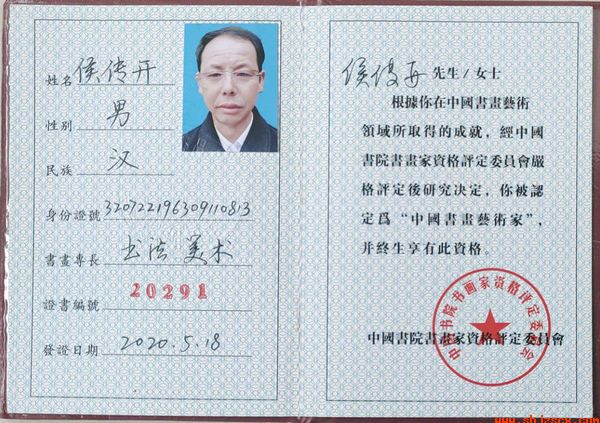 姓名 侯传开
性别 男
民族 汉
身份證號 320722196309110813
書畫專長 书法 美术
證書編號 20291
發證日期 2020.5.18
侯 先生/女士
根據你在中國書畫藝術
領域所取得的成就，經中國
書院書畫家資格評定委員會嚴
格評定後研究決定，你被認
定爲“中國書畫藝術家”，
并終生享有此資格。
中國書院書畫家資格評定委員會
中国书院书画家资格评定委员会